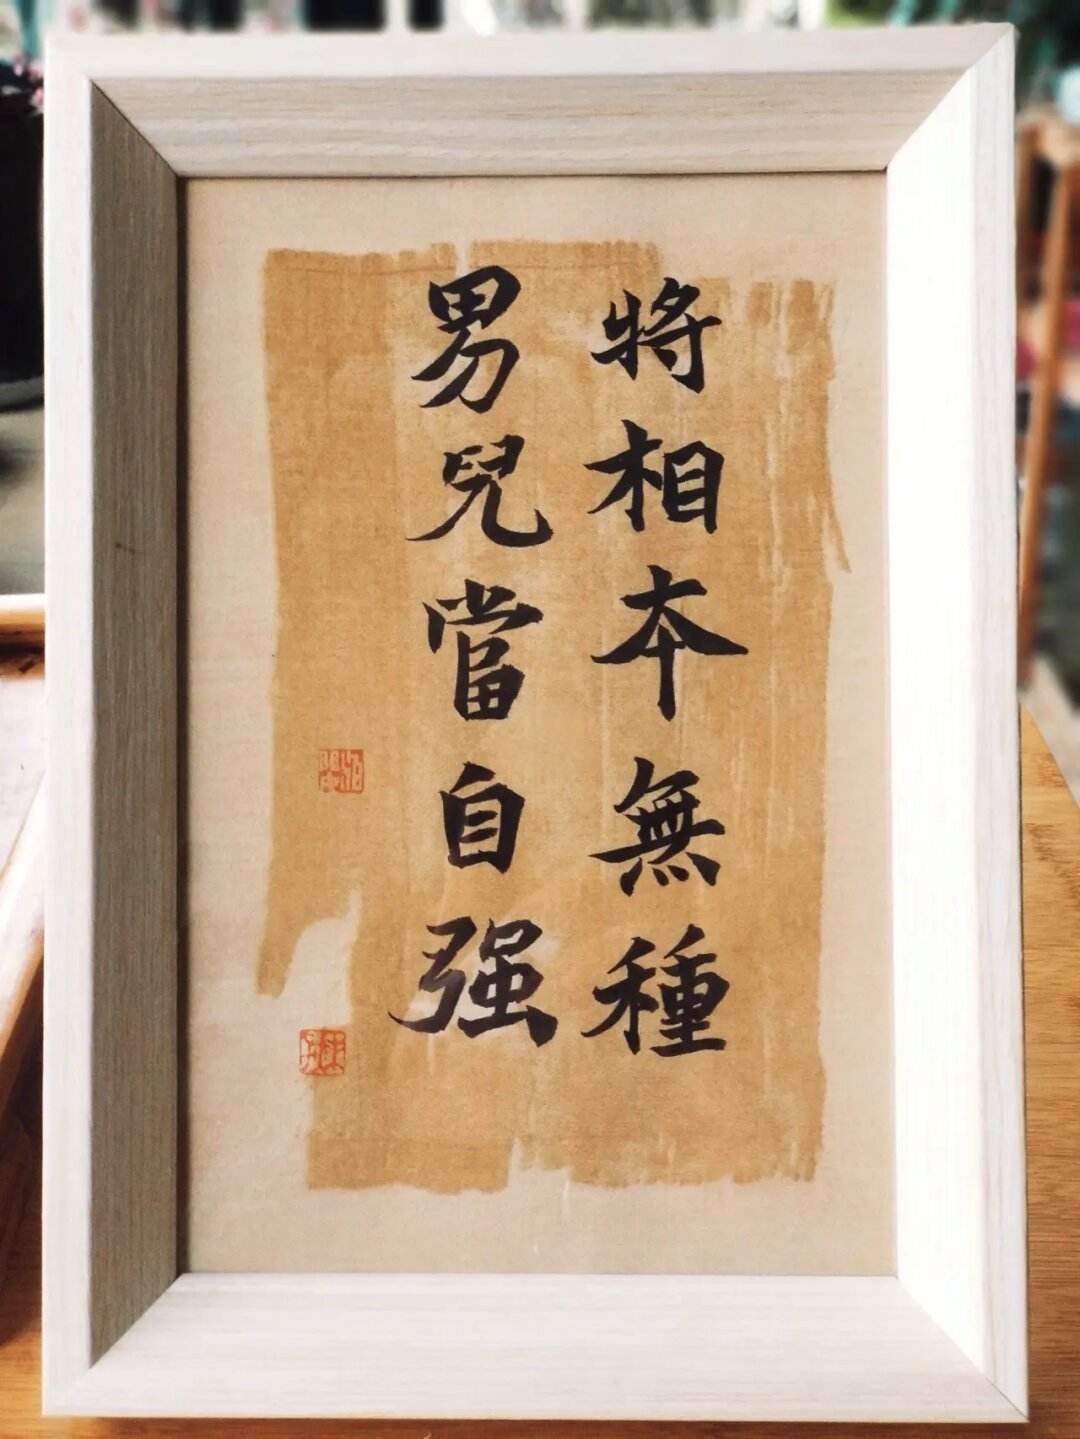 將相本無種
男兒當自强